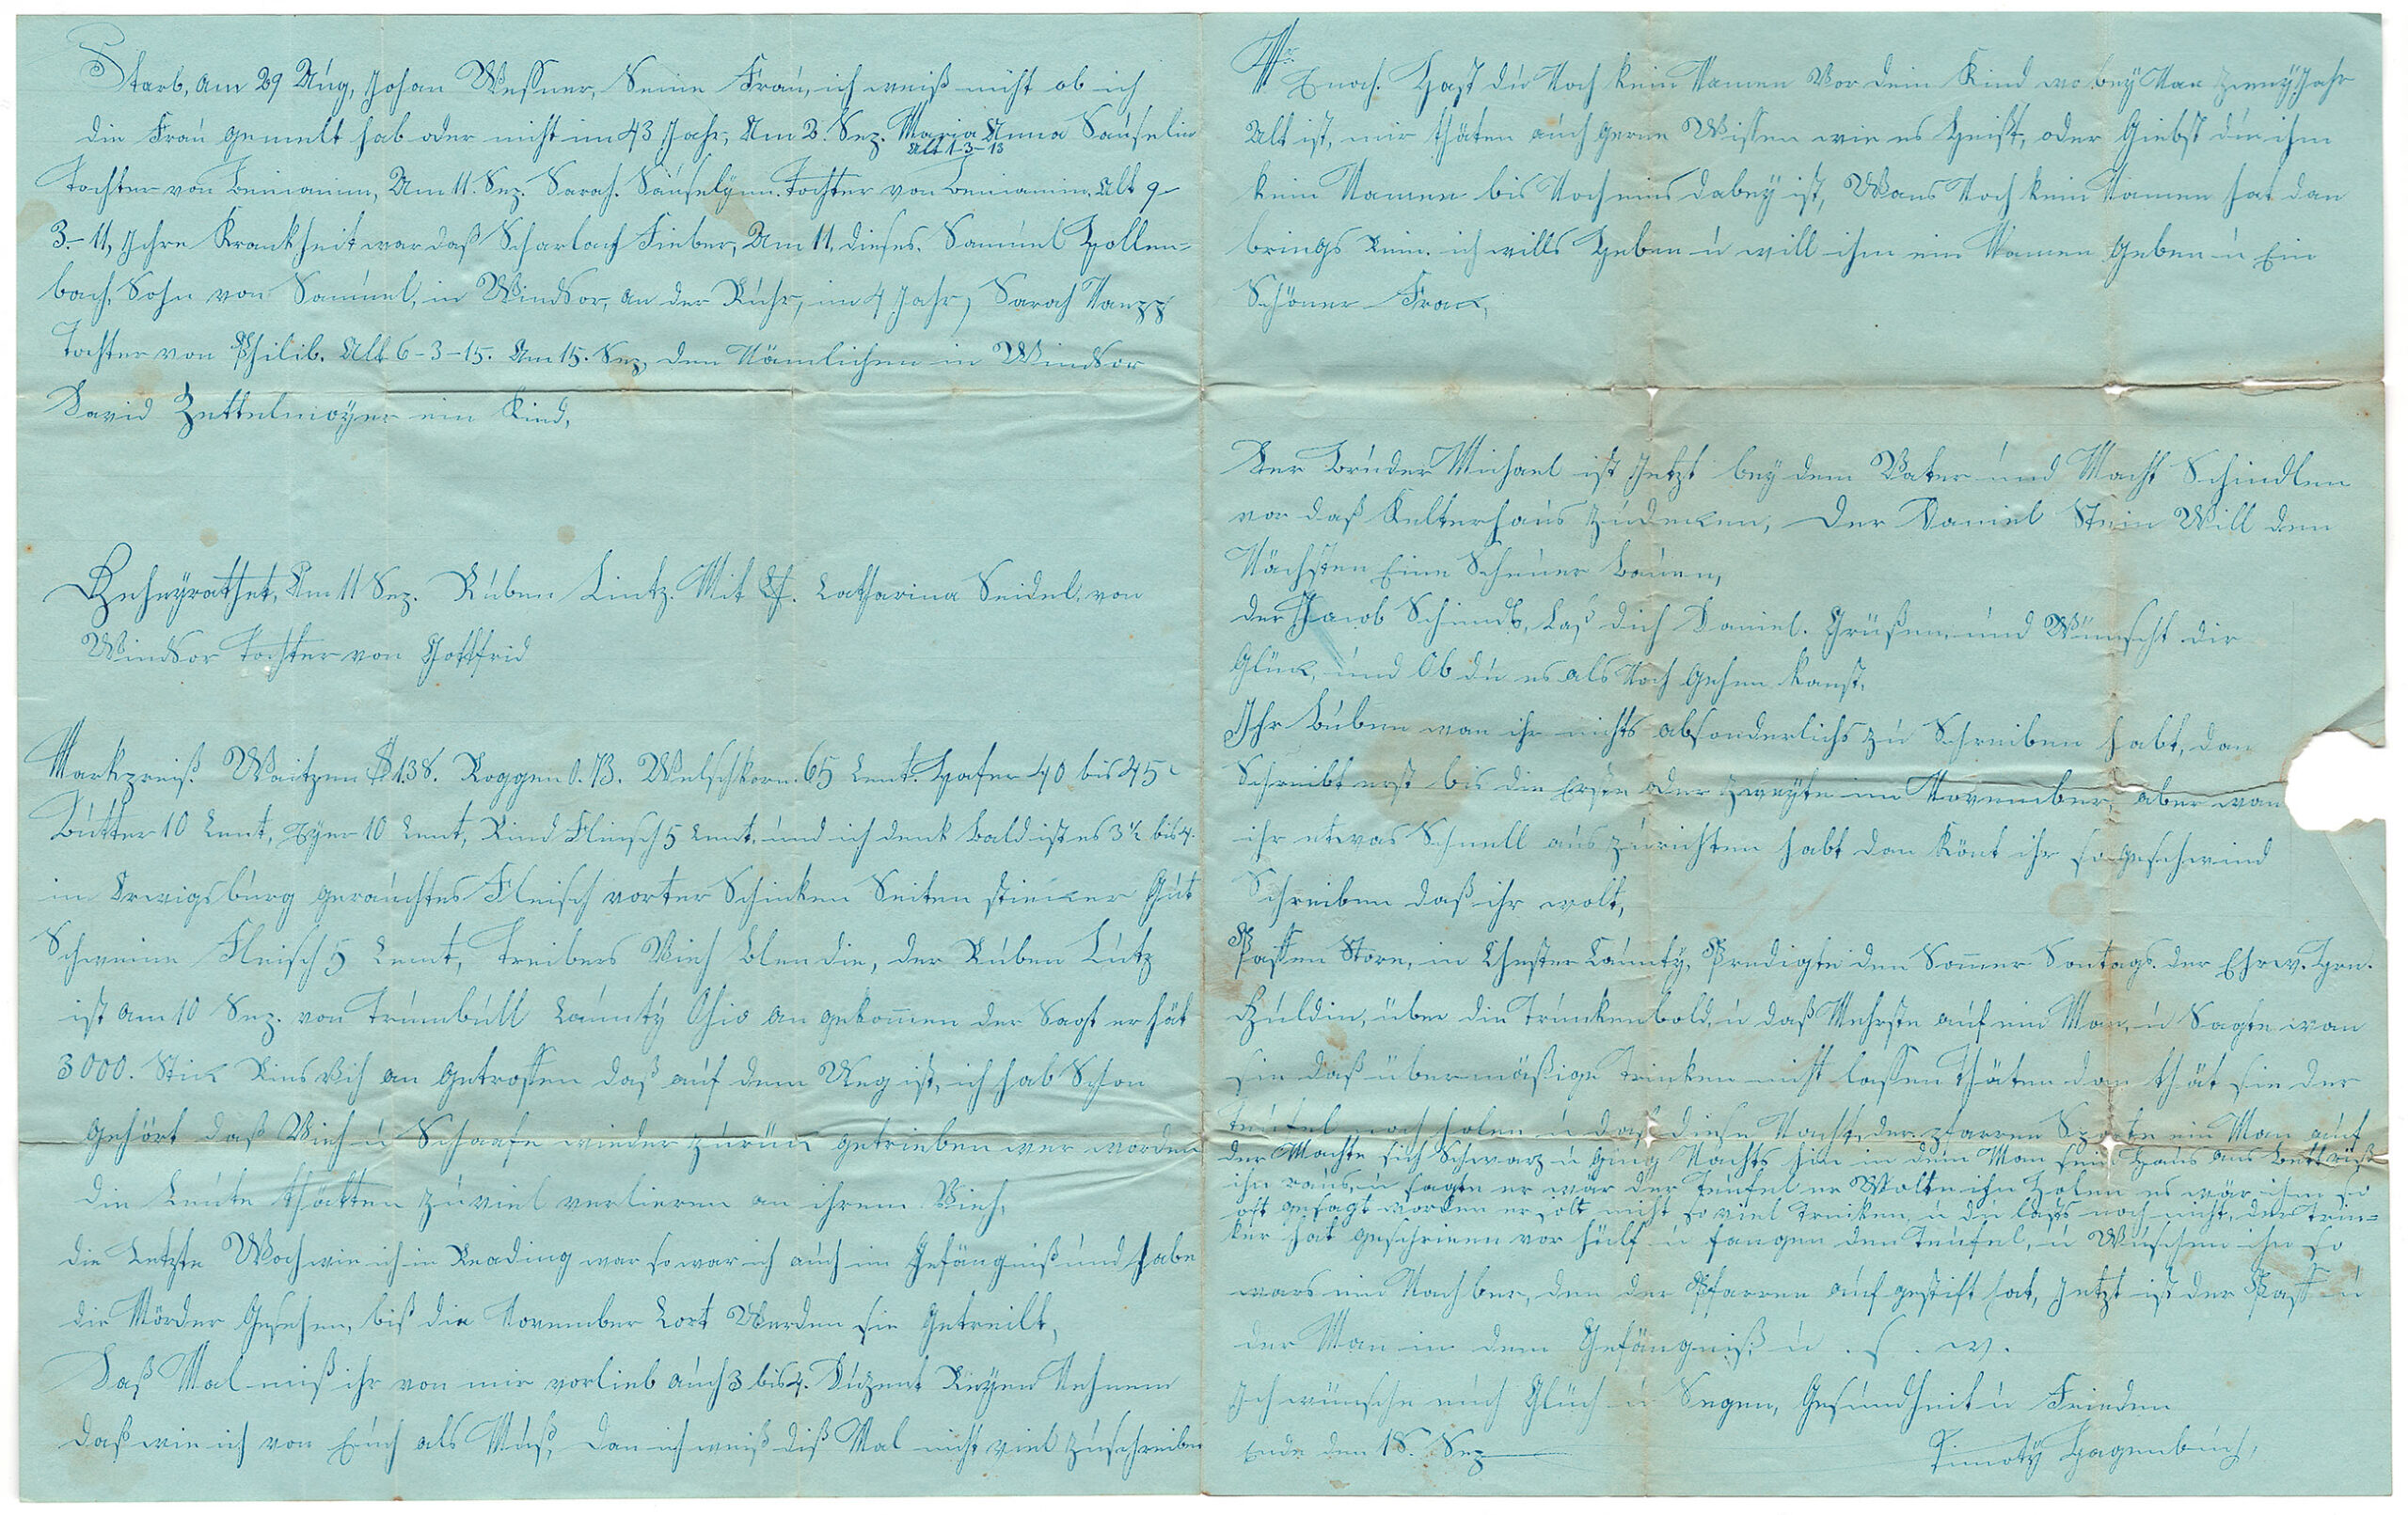 Starb, am 29 Aug, Johan Weßner, Seine Frau, ich weiß nicht ob ich
die Frau gemelt hab oder nicht im 43 Jahr, Am 2. Sez. Maria Anna Säuselin
Alt 1-3-13
Tochter von Beniamin, Am 11. Sez. Sarah. Säuselÿnn. Tochter von Beniamin. Alt 9-
3.-11, Ihre Krankheit war daß Scharlach Fieber, Am 11. dieses. Samuel Hollen=
bach, Sohn von Samuel, in Windsor, an der Ruhr, im 4 Jahr, Sarah
Tochter von Philib. Alt 6-3-15. Am 15. Sez, den Nämlichen in Windsor
David Zettelmoÿer ein Kind,
Geheÿrathet, Am 11 Sez. Ruben Lintz. Mit Catharina Seidel, von
Windsor Tochter von Gottfrid
Markpreiß Waitzen $ 1.38. Roggen 0.73. Welschkorn. 65 Cent. Hafer 40 bis 45 c
Butter 10 Cent, Eÿer 10 Cent, Rind Fleisch 5 Cent, und ich denk bald ist es 3½ bis 4.
in Orwigsburg geräuchtes Fleisch vorter Schinken Seiten stücker Gut
Schweine Fleisch 5 Cent, Treibers Vieh blendie, der Ruben Lutz
ist am 10 Sez. von Trumbull Countÿ Ohio an gekom̅en der Sagt er hät
3000. Stick Rins Vih an Getroffen daß auf dem Weg ist, ich hab Schon
Gehört daß Vieh u Schaafe wieder zurück getrieben wer worden
die Leute thätten zu viel verlieren an ihrem Vieh,
die Letzte Woch wie ich in Reading war so war ich auch im Gefängniß und habe
die Mörder Gesehen, biß die November Cort Werden sie Getreilt,
Daß Mal miß ihr von mir vorlieb auch 3 bis 4. Duzent Nehmen
daß wie ich von Euch als Muß, dan ich weiß diß Mal nicht viel zuschreiben
Enoch. Hast du Noch kein Namen Vor dein Kind wo beÿ Nan zweÿ Jahr
Alt ist, mir thäten auch gerne Wissen wie es Heist, oder Giebst du ihm
kein Namen bis Noch eins dabeÿ ist, Wans Noch kein Namen hat dan
brings Rein. ich wills Heben u will ihm ein Namen Geben u Ein
Schöner Frack,
Der Bruder Michael ist Jetzt beÿ dem Vater und Macht Schindlen
vor daß Kelterhaus zudecken, Der Daniel Stein Will den
Nächsten Eine Scheuer Bauen,
der Jacob Schimdt, Laß dich Daniel. Grüßen, und Wünscht dir
Glück, und Ob du es als Noch Gehen kanst,
Ihr Buben wan ihr nichts absonderlichs zu Schreiben habt, dan
Schreibt erst bis die Erste oder Zweÿte im November, aber wan
ihr etwas Schnell aus zurichten habt dan Könt ihr so geschwind
Schreiben daß ihr wolt,
Paffen Store, in Chester Caunty, Predigte den Som̅er Sontags. der Ehrw. Hrn.
Guldin, über die Trunkenbold, u daß Mehrste auf ein Man, u Sagte wan
sie daß übermäßige trinken nicht lassen thäten dan thät sie der
teufel noch holen u daß diese Nacht, der pfarren ein Man auf
der Machte sich Schwarz u ging Nachts hin in dem Man sein Haus ans Bett riß
ihn raus, u sagte er wär der Teufel er Wolte ihn Holen es wär ihm so
oft gesagt worden er solt nicht so viel Trinken, u du läßts noch nicht, der Trin=
ker hat geschrieen vor hülf u fangen den Teufel, u Wuschen ihn so
wars ein Nachber, den der Pfarren auf gestift hat, Jetzt ist der Paff u
der Man in dem Gefängniß u . s . w.
Ich wünsche euch Glück u Segen, Gesundheit u Frieden
Ende den 18. Sez
Timotÿ Hagenbuch,